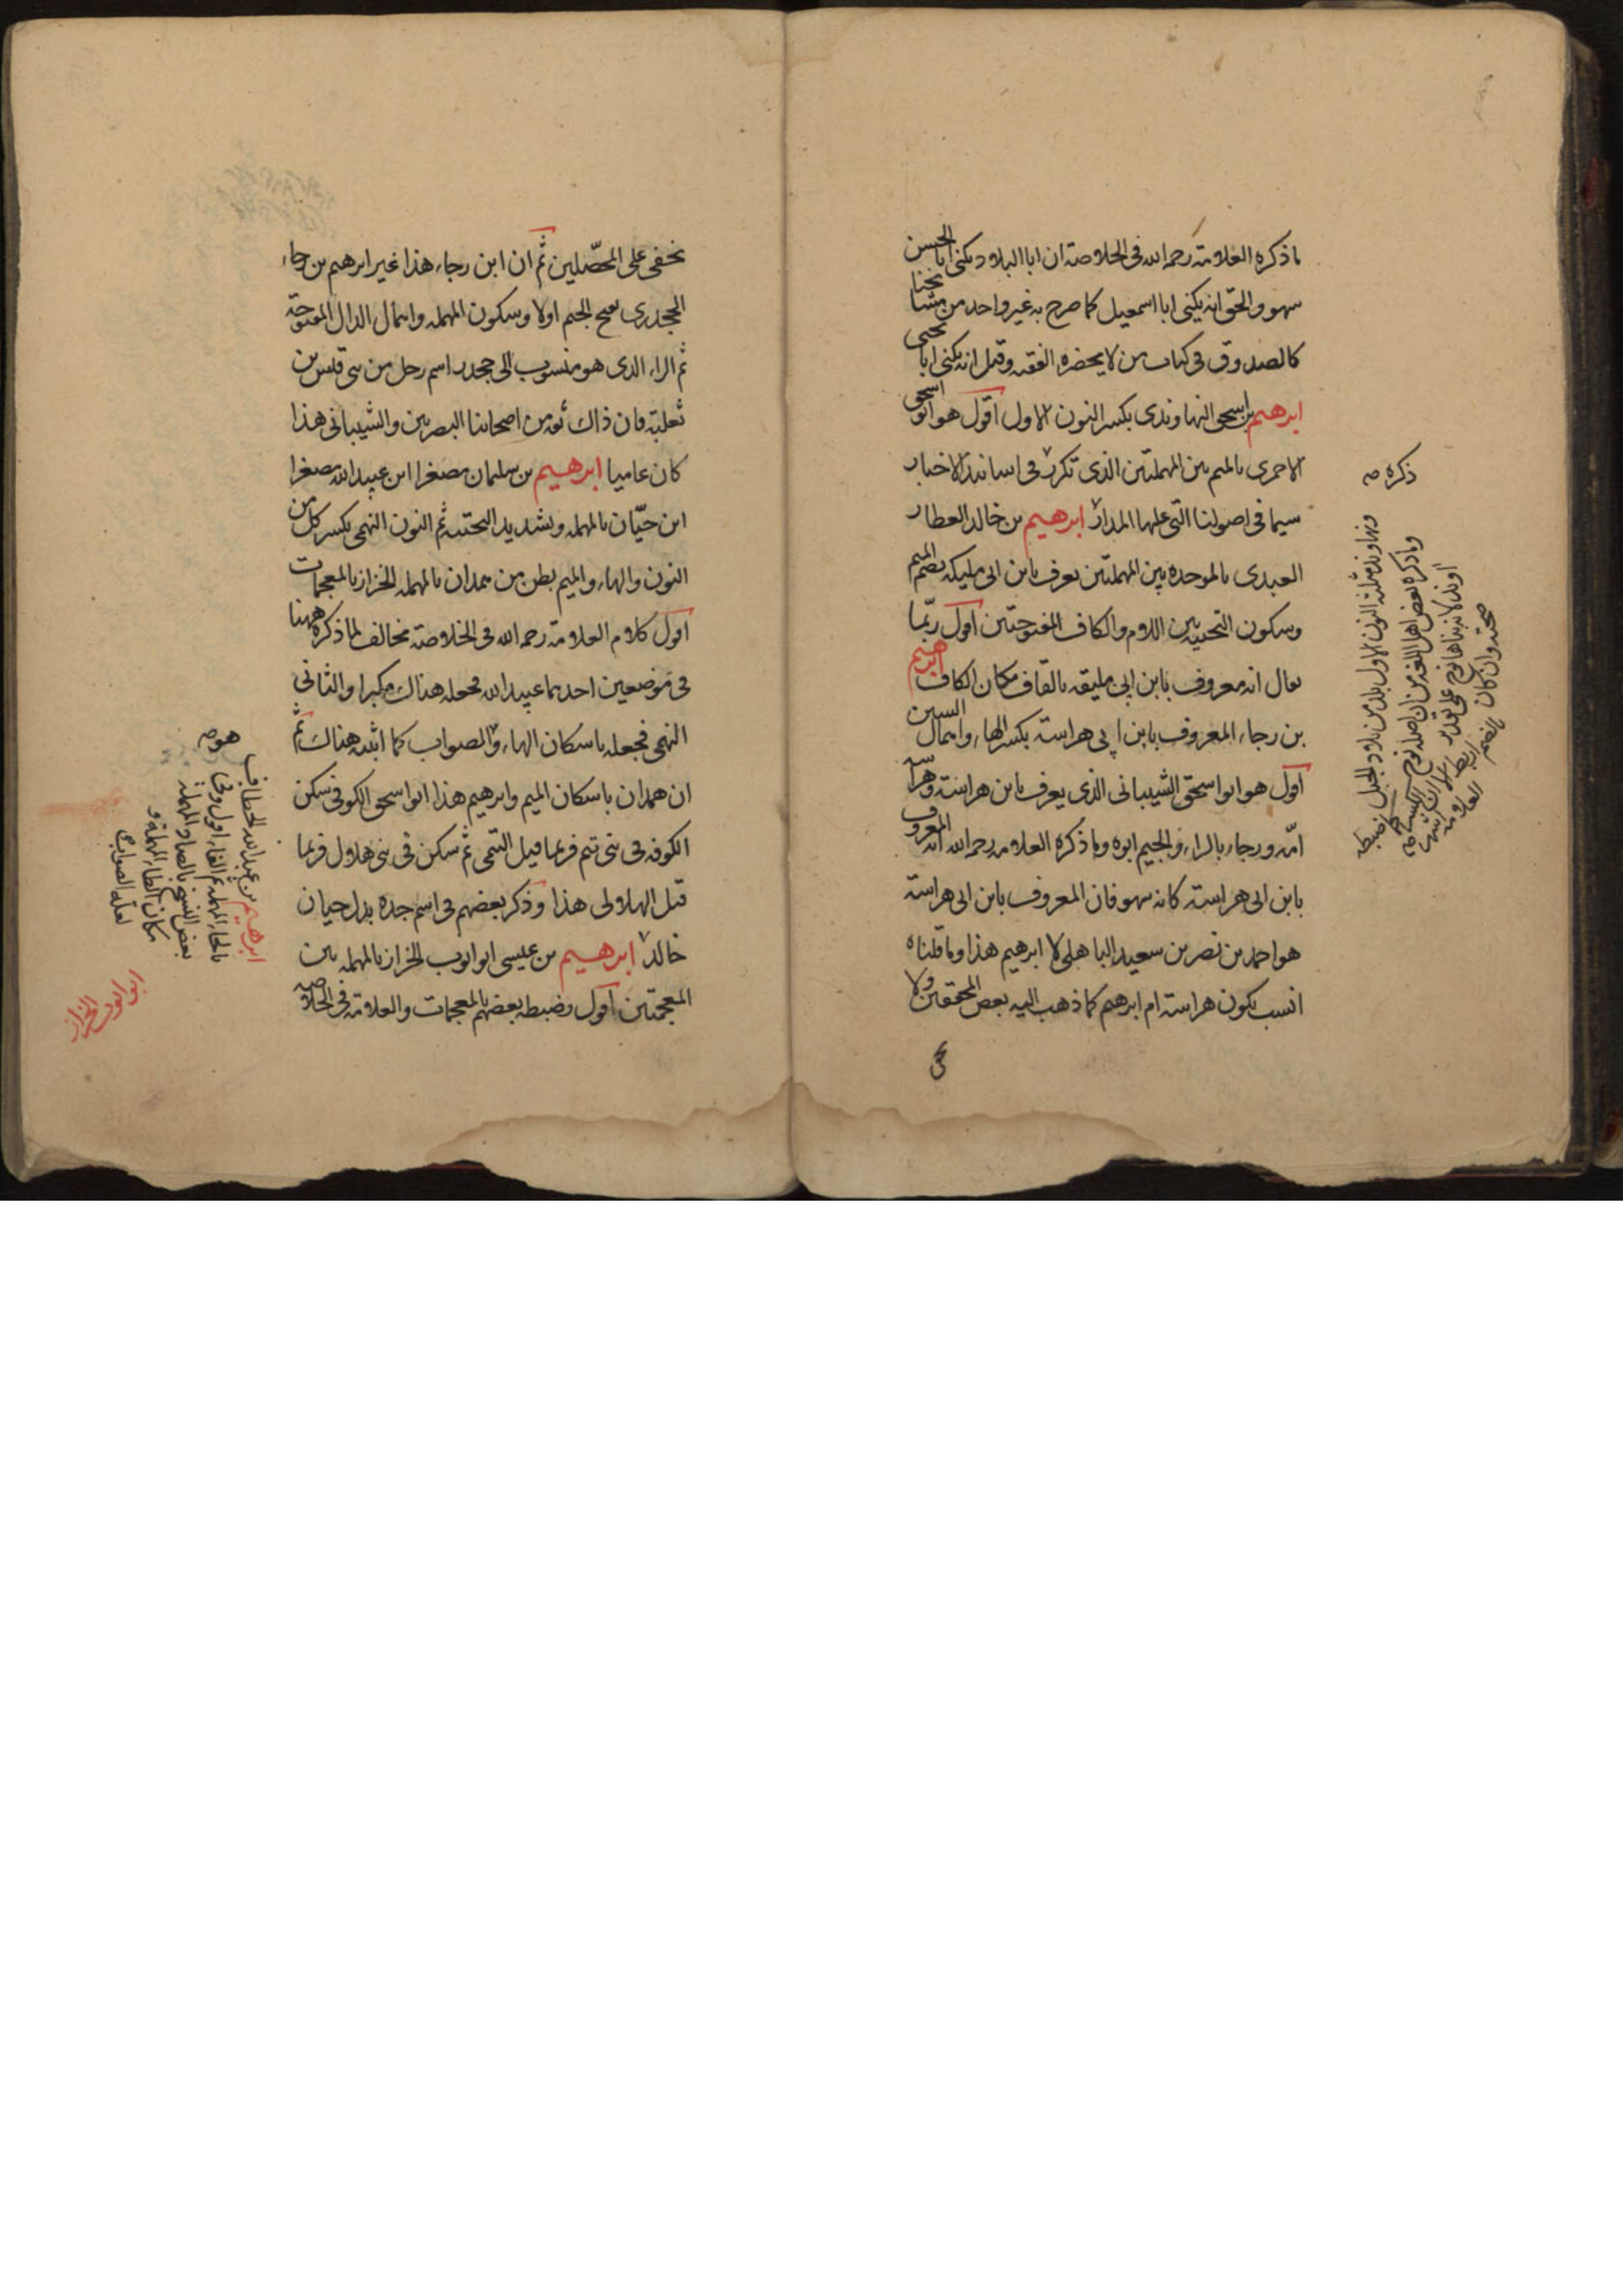 ما ذكره العلامة رحمه الله في الخلاصة ان ابا البلاد يكنى ابا الحسن
سهو والحق انه يكنى ابا اسمعيل كما صرح به غير واحد من مشايخنا
كالصدوق في كتاب من لا يحضره الفقيه وقيل انه يكنى ابا يحيى
ابرهيم بن اسحق النهاوندى بكسر النون الاول اقول هو ابو اسحق
الاحمرى بالميم بين المهملتين الذى تكرر في اسانيد الاخبار
سيما في اصولنا التى عليها المدار ابرهيم بن خالد العطار
العبدى بالموحده بين المهملتين يعرف بابن ابى مليكه بضم الميم
وسكون التحتيه بين اللام والكاف المفتوحتين اقول ربّما
يقال انه معروف بابن ابى مليقه بالقاف مكان الكاف ابرهيم
بن رجاء المعروف بابن ابي هراسة بكسر الهاء واهمال السين
اقول هو ابو اسحق الشيبانى الذى يعرف بابن هراسة وهراسه
امّه ورجاء بالراء والجيم ابوه وما ذكره العلامه رحمه الله انه المعروف
بابن ابى هراسة كانه سهو فان المعروف بابن ابى هراسة
هو احمد بن نصر بن سعيد الباهلى لا ابرهيم هذا وما قلناه
انسب بكون هراسة ام ابرهيم كما ذهب اليه بعض المحققين ولا
ذكره صه
ونهاوند مثلثة النون الاول بلد من بلاد الجبل
وما ذكره بعض اهل اللغه من ان اصله نوح
اوند لانه بناها نوح على تقدير
صحته وان كان
يخفى على المحصّلين ثم ان ابن رجاء هذا غير ابرهيم بن رجاء
الجحدرى بفتح الجيم اولا وسكون المهمله واهمال الدال المفتوحة
ثم الراء الذى هو منسوب الى جحدر اسم رجل من بنى قيس بن
ثعلبة فان ذاك ثقه من اصحابنا البصريين والشيبانى هذا
كان عاميا ابرهيم بن سليمان مصغرا ابن عبيد الله مصغرا
ابن حيّان بالمهمله وبشديد التحتيه ثم النون النهمى بكسر كل من
النون والهاء والميم بطن من همدان بالمهمله الخزاز بالمعجمات
اقول كلام العلامة رحمه الله في الخلاصة مخالف لما ذكره ههنا
في موضعين احدهما عبيد الله فجعله هناك مكبرا والثانى
النهمى فجعله باسكان الهاء والصواب كما اثبته هناك ثم
ان همدان باسكان الميم وابرهيم هذا ابو اسحق الكوفى سكن
الكوفه في بنى تيم فربما قيل التيمى ثم سكن في بنى هلال فربما
قيل الهلالى هذا وذكر بعضهم في اسم جده بدل حيان
خالد ابرهيم بن عيسى ابو ايوب الخراز بالمهمله بين
المعجمتين اقول وضبطه بعضهم بالمعجمات والعلامة في الخلاصه
هو صه
ابرهيم بن عبد الله الحطاف
بالحاء المهمله ثم الفاء اقول وفى
بعض النسخ بالصاد المهملة
مكان الطاء المهملة و
لعله الصواب
ابو ايوب الخراز